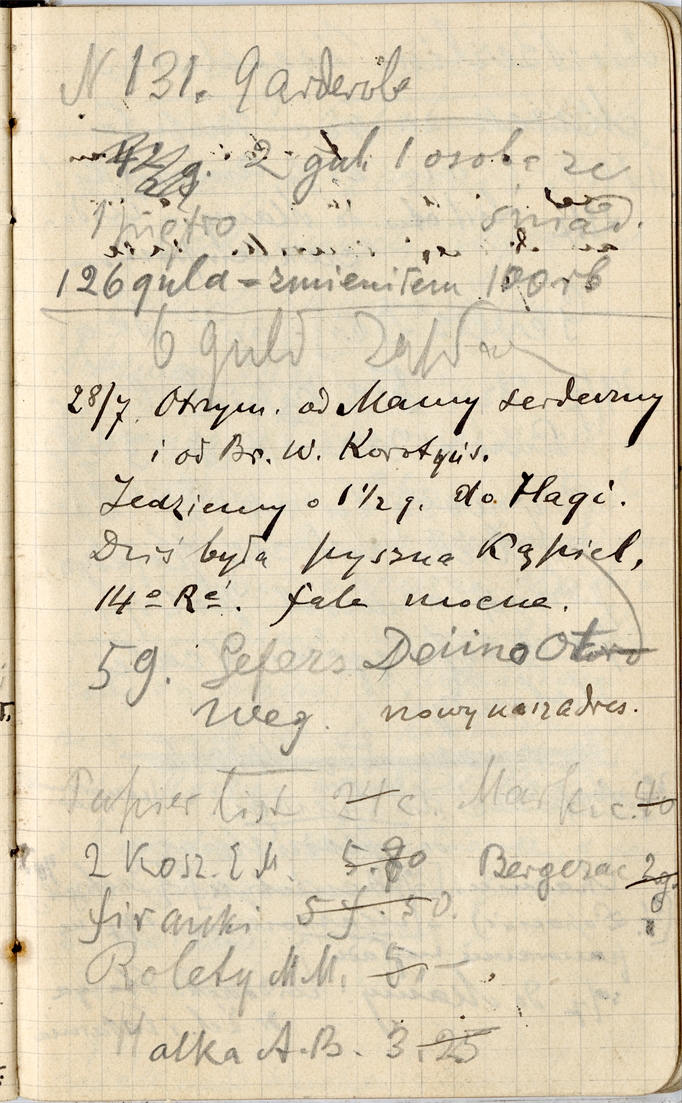 N 131. Garderobe
g. 2 guld. 1 osoba ze
1 piętro śniad.
126 guld = zmieniłem 100 rb
6 guld
28/7. Otrzym. od Mamy serdeczny
i od Br. W. Korotyńs.
Jedziemy o 1 1/2 g. do Hagi.
Dziś była pyszna Kąpiel,
14º Ré. fale mocne.
59. Gefers Deiino
Weg. nowy nasz adres.
Papier list 24 c. Marki c. 40
2 Kosz. E M. 5. Bergerac 2 g.
firanki 5 f. 50.
Rolety M. M. 5 —
alka A. B. 3.25